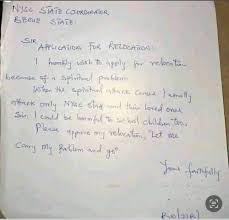 NYSC STATE COORDINATOR
BENUE STATE.
SIR
APPLICATION FOR RELOCATION:
I humbly wish to apply for relocation
because of a spiritual problem
When the spiritual attack comes I usually
attack only NYSC staff and their loved ones
Sir. I could be harmful to school children too.
Please approve my relocation, "Let me
carry my problem and go"
Yours faithfully